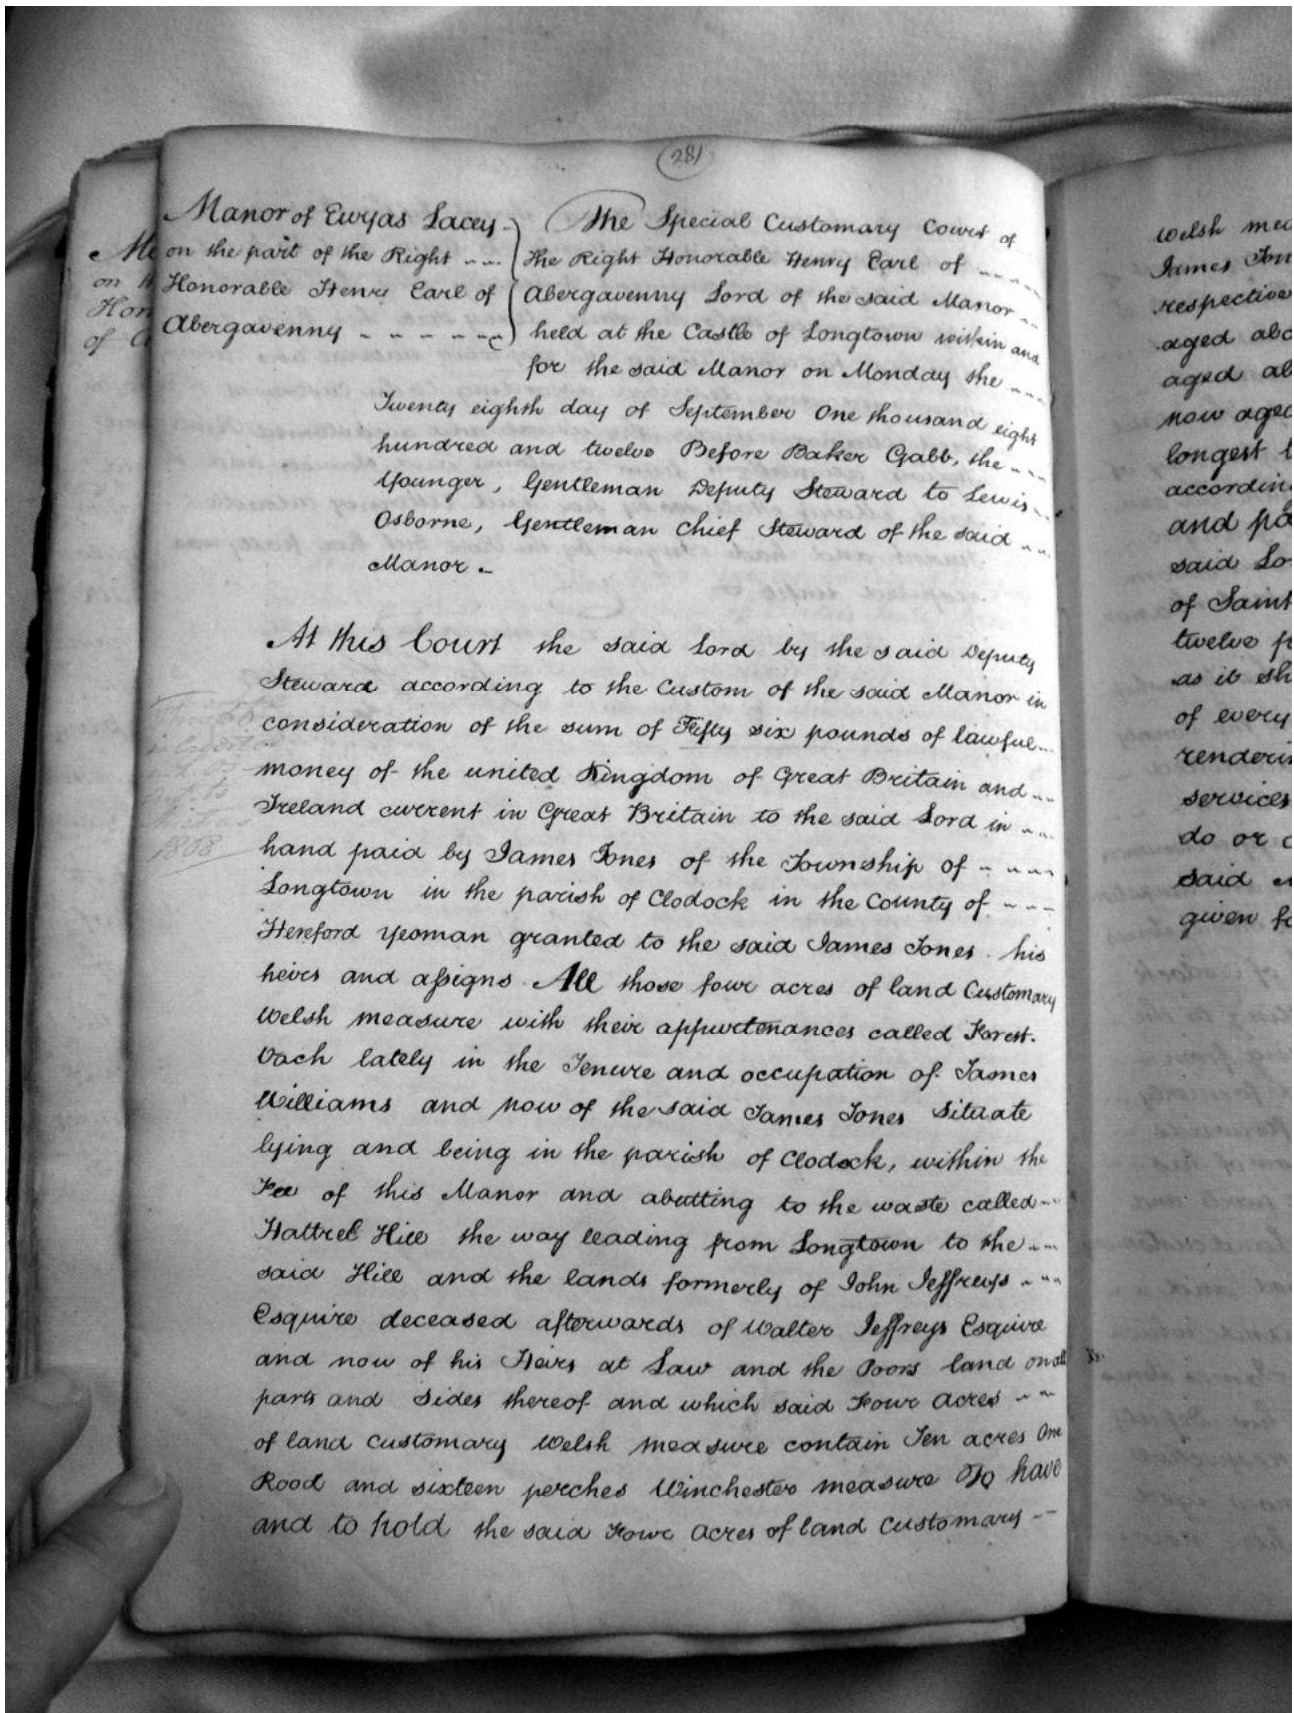 (281)
Manor of Ewyas Lacey
on the part of the Right
Honorable Henry Earl of
Abergavenny
The Special Customary Court of
the Right Honorable Henry Earl of
Abergavenny Lord of the said Manor
held at the Castle of Longtown within and
for the said Manor on Monday the
Twenty eighth day of September One thousand eight
hundred and twelve Before Baker Gabb, the
Younger, Gentleman Deputy Steward to Lewis
Osborne, Gentleman Chief Steward of the said
Manor.
At this Court the said Lord by the said Deputy
Steward according to the Custom of the said Manor in
consideration of the sum of Fifty six pounds of lawful
money of the united Kingdom of Great Britain and
Ireland current in Great Britain to the said Lord in
hand paid by James Jones of the Township of
Longtown in the parish of Clodock in the County of
Hereford yeoman granted to the said James Jones his
heirs and assigns All those four acres of land Customary
Welsh measure with their appurtenances called Forest
Vach lately in the Tenure and occupation of James
Williams and now of the said James Jones situate
lying and being in the parish of Clodock, within the
Fee of this Manor and abutting to the waste called
Hattrel Hill the way leading from Longtown to the
said Hill and the lands formerly of John Jeffreys
Esquire deceased afterwards of Walter Jeffreys Esquire
and now of his Heirs at Law and the Poors land on all
parts and sides thereof and which said Four acres
of land customary Welsh measure contain Ten acres One
Rood and sixteen perches Winchester measure To have
and to hold the said Four Acres of land Customary
1868
Me
on
Hon
of
welsh
James
respective
aged
aged
now aged
longest
and
said
of Saint
twelve
as it
of every
services
do or
said
given